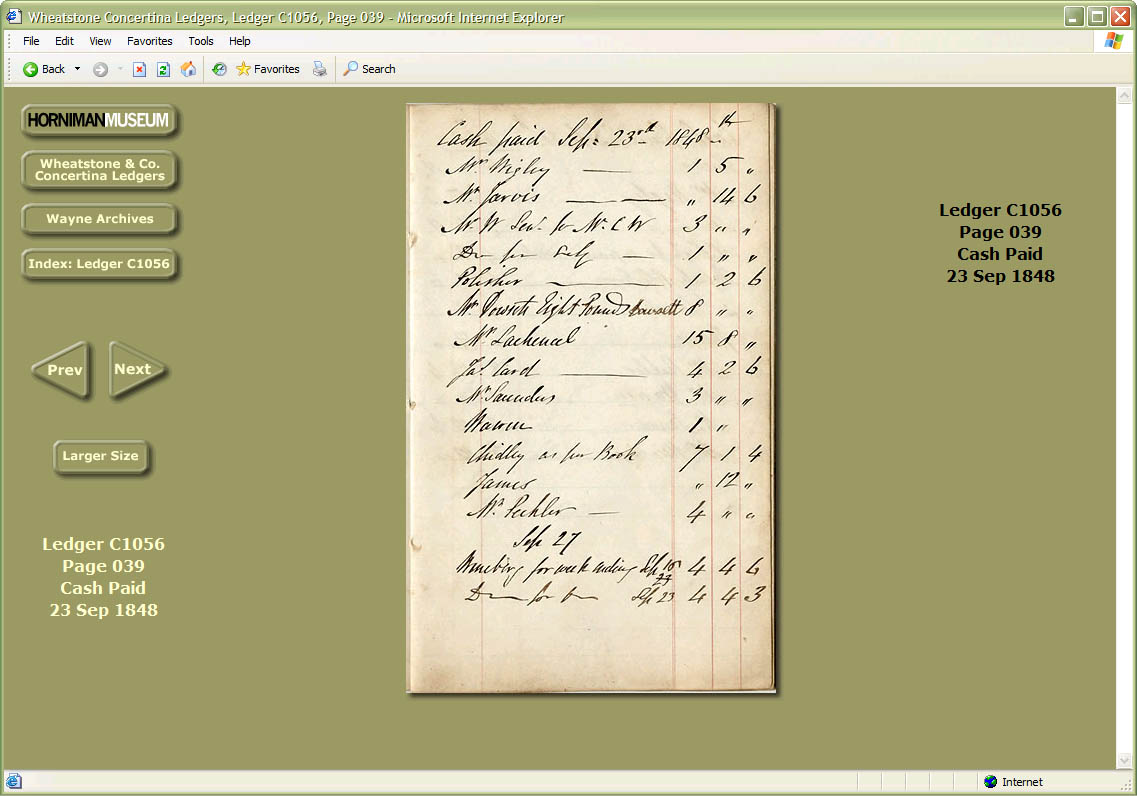 Wheatstone Concertina Ledgers, Ledger C1056, Page 039 - Microsoft Internet Explorer
File Edit View Favorites Tools Help
Back Favorites Search
HORNIMANMUSEUM
Wheatstone & Co.
Concertina Ledgers
Wayne Archives
Index: Ledger C1056
Prev Next
Larger Size
Ledger C1056
Page 039
Cash Paid
23 Sep 1848
Cash paid Sep: 23rd 1848
Mr Wigley — 1 5 "
Mr Jarvis — — " 14 6
Mr W Senr. for Mr. C W 3 " "
Do for Self — 1 " "
Polisher — 1 2 6
Mr Dowsett Eight Pounds Dowsett 8 " "
Mr Lachenal 15 8 "
Jas. Card — 4 2 6
Mr Saunders 3 " "
Warren 1 "
Chidley as per Book 7 1 4
James " 12 "
Mr. Pechler — 4 " "
Sep 27
for week ending Sep 16 4 4 6
Do for Do Sep 23 4 4 3
Ledger C1056
Page 039
Cash Paid
23 Sep 1848
Internet